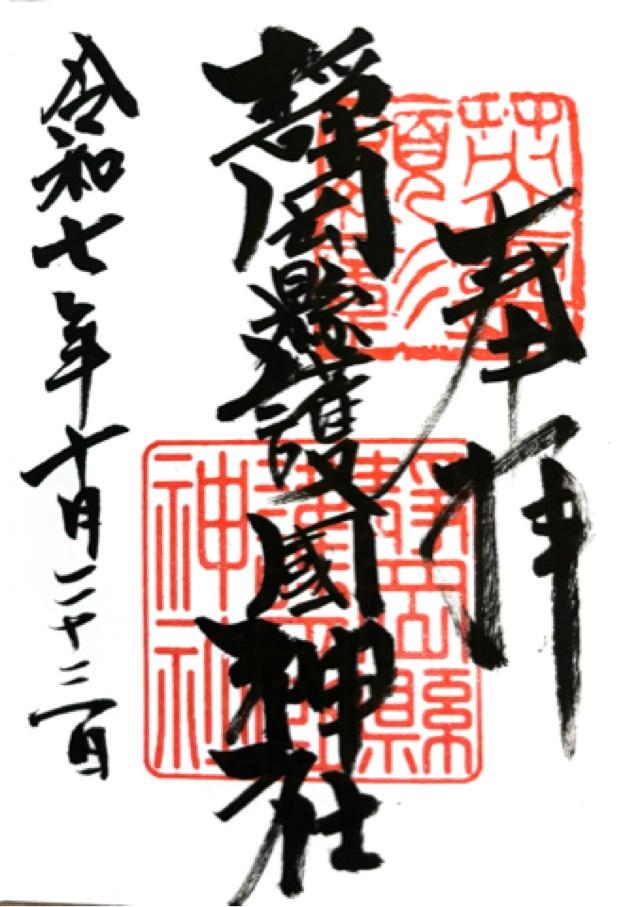 奉拝
靜岡縣護國神社
令和七年十月二十三日
靜岡縣
護國
神社